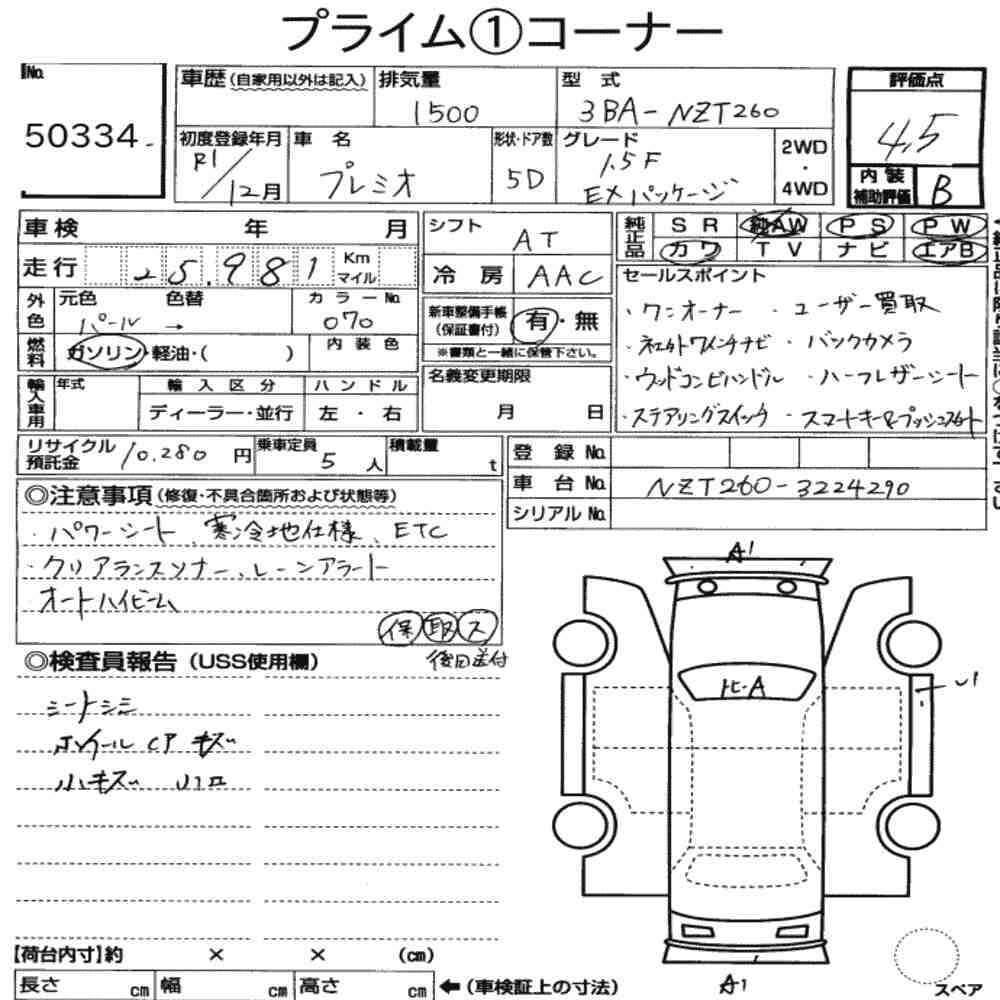 プライム①コーナー
No. 50334
車歴(自家用以外は記入) 排気量 1500 型式 3BA-NZT260 評価点 4.5
初度登録年月 R1/12月 車名 プレミオ 形状・ドア数 5D グレード 1.5F EXパッケージ 2WD・4WD
内装補助評価 B
車検 年 月 シフト AT 純正品 SR 純AW PS PW
走行 25,981 Km マイル 冷房 AAC カワ TV ナビ エアB
外色 元色 パール → 色替 カラーNo. 070 新車整備手帳(保証書付) 有・無
※書類と一緒に保管下さい。
燃料 ガソリン・軽油・( ) 内装色
輸入車用 年式 輸入区分 ディーラー・並行 ハンドル 左・右 名義変更期限 月 日
セールスポイント
・ワンオーナー ・ユーザー買取
ナビ ・バックカメラ
・ウッドコンビハンドル ・ハーフレザーシート
・ステアリングスイッチ ・スマートキー&プッシュスタート
リサイクル預託金 10,280円 乗車定員 5人 積載量 t 登録No.
車台No. NZT260-3224290
シリアルNo.
◎注意事項(修復・不具合箇所および状態等)
・パワーシート、寒冷地仕様、ETC
・クリアランスソナー、レーンアラート
オートハイビーム
保 取 ス
後日送付
◎検査員報告(USS使用欄)
シートシミ
ホイールCPキズ
小キズ
A1
ヒ-A
U1
A1
【荷台内寸】約 × × (cm)
長さ cm 幅 cm 高さ cm ←(車検証上の寸法)
スペア